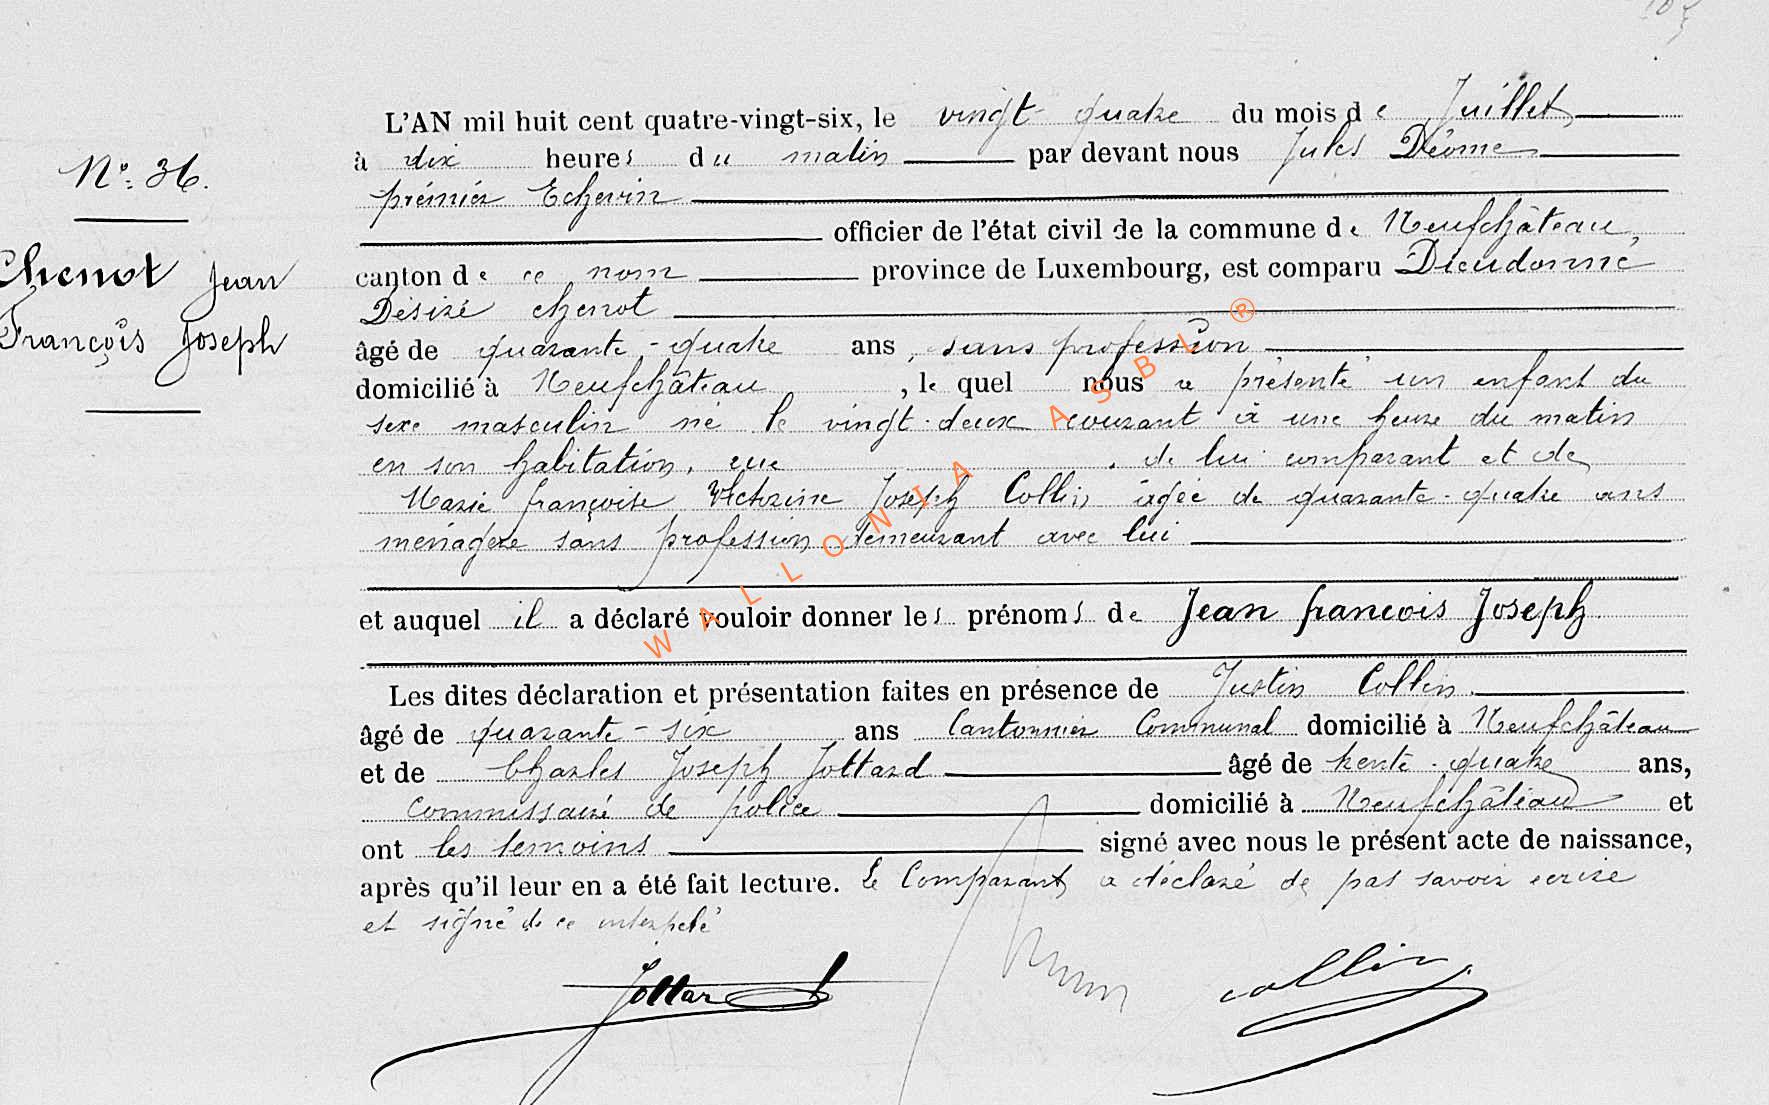 L'AN mil huit cent quatre-vingt-six, le vingt quatre du mois de Juillet
à dix heures du matin par devant nous Jules Déome
N° 36.
prémier Echevin
officier de l'état civil de la commune de Neufchâteau,
Chenot Jean
canton de ce nom province de Luxembourg, est comparu Dieudonné
Désiré chenot
François Joseph
âgé de quarante-quatre ans, sans profession
domicilié à Neufchâteau, lequel nous a présenté un enfant du
sexe masculin né le vingt-deux courant à une heure du matin
en son habitation, rue . de lui comparant et de
Marie françoise Victorine Joseph Collin âgée de quarante-quatre ans
ménagère sans profession demeurant avec lui
et auquel il a déclaré vouloir donner les prénoms de Jean francois Joseph
Les dites déclaration et présentation faites en présence de Justin Collin
âgé de quarante-six ans Cantonnier Communal domicilié à Neufchâteau
et de Charles Joseph Jottard âgé de trente-quatre ans,
commissaire de police domicilié à Neufchâteau et
ont les temoins signé avec nous le présent acte de naissance,
après qu'il leur en a été fait lecture. Le Comparant a déclaré de pas savoir ecrire
et signé de ce interpelé
Jottard collin
WALLONIA ASBL ®